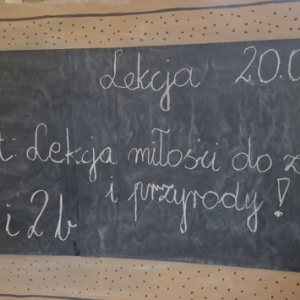 Lekcja 20.0
t: Lekcja miłości do z
i przyrody!
i 2b